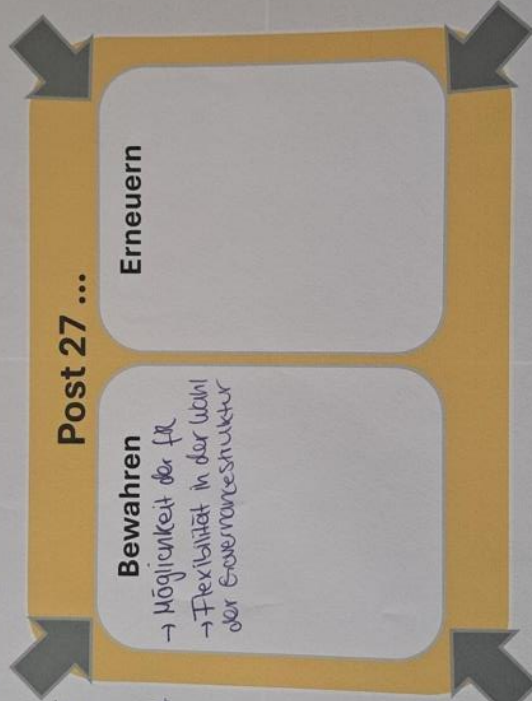 Post 27 ...
Bewahren
→ Möglichkeit der fR
→ Flexibilität in der Wahl
der Governancestruktur
Erneuern